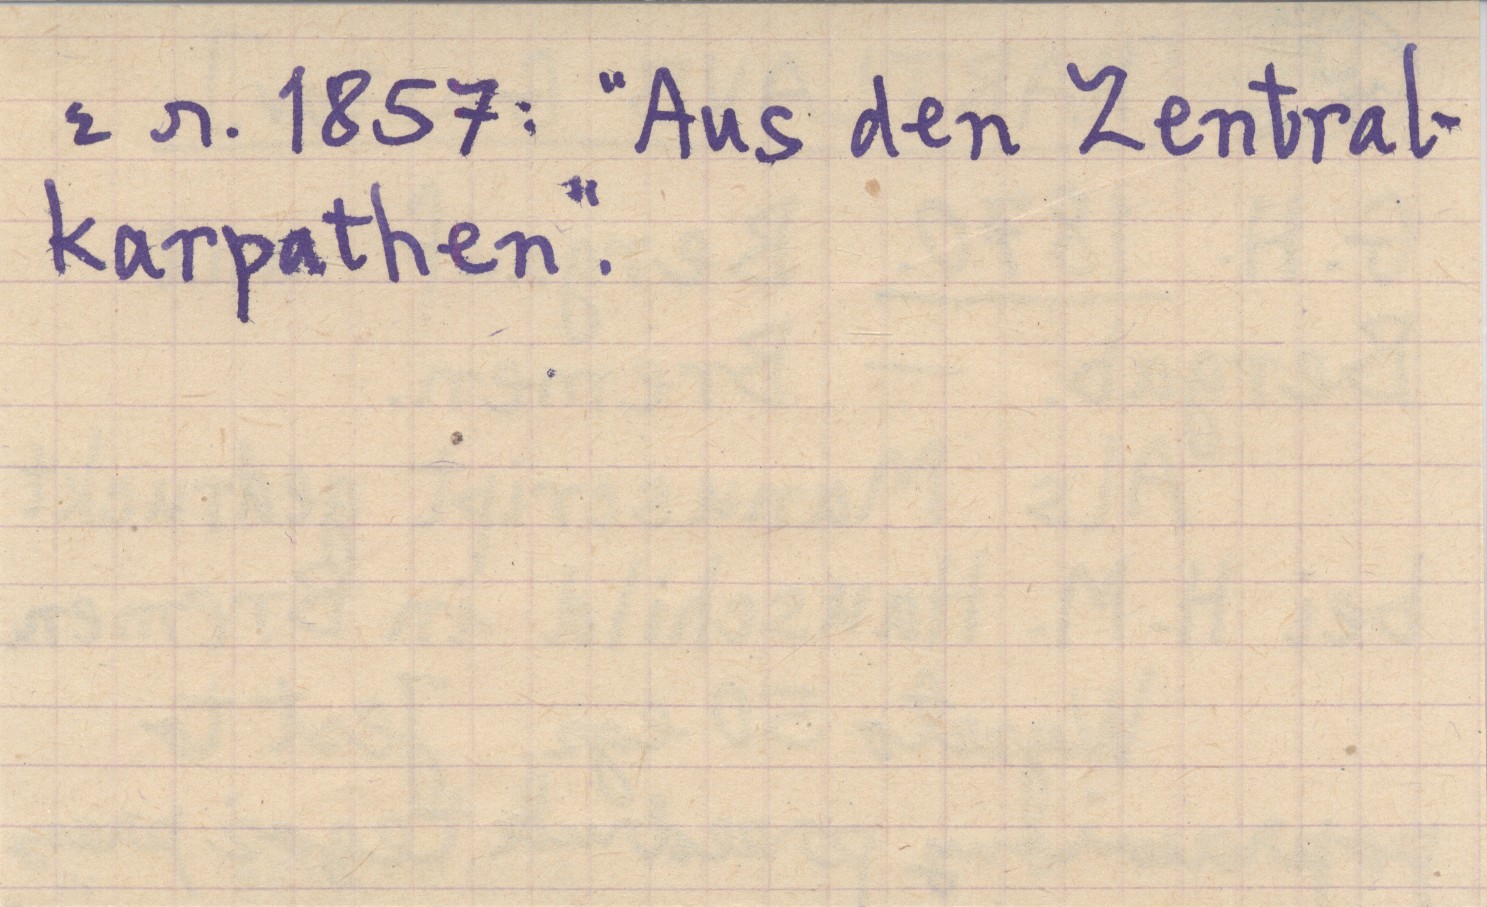 z r. 1857: "Aus den Zentral-
karpathen".